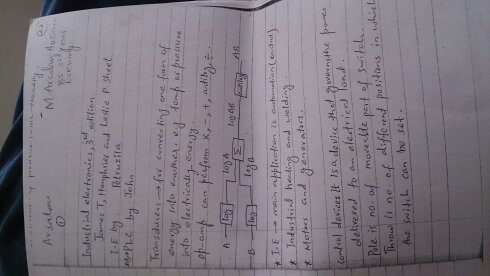 Arsalan
Industrial electronics, 3rd edition.
James T, Humphries and Leslie P. Sheet
I-E by Petrazilla
by John
Transducers → for converting one form of
energy into another. e.g temp or pressure
into electrically energy
op-amp can perform x, -, +, antilog, ÷.
A → Log
log A
B → Log
log B
Σ
log AB
antilog
AB
* I-E → main application is automation
* Industrial heating and welding.
* Motors and generators.
Control devices It is a device that governs the power
delivered to an electrical load.
Pole is no. of movable part of switch.
Throw is no. of different positions in which
the switch can be set.